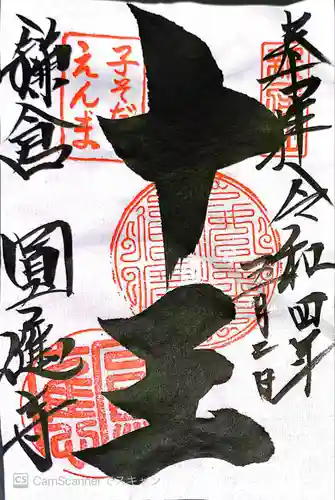 奉拝 令和四年
月二日
十王
子そだて
えんま
鎌倉 圓應寺
CS CamScanner でスキャン